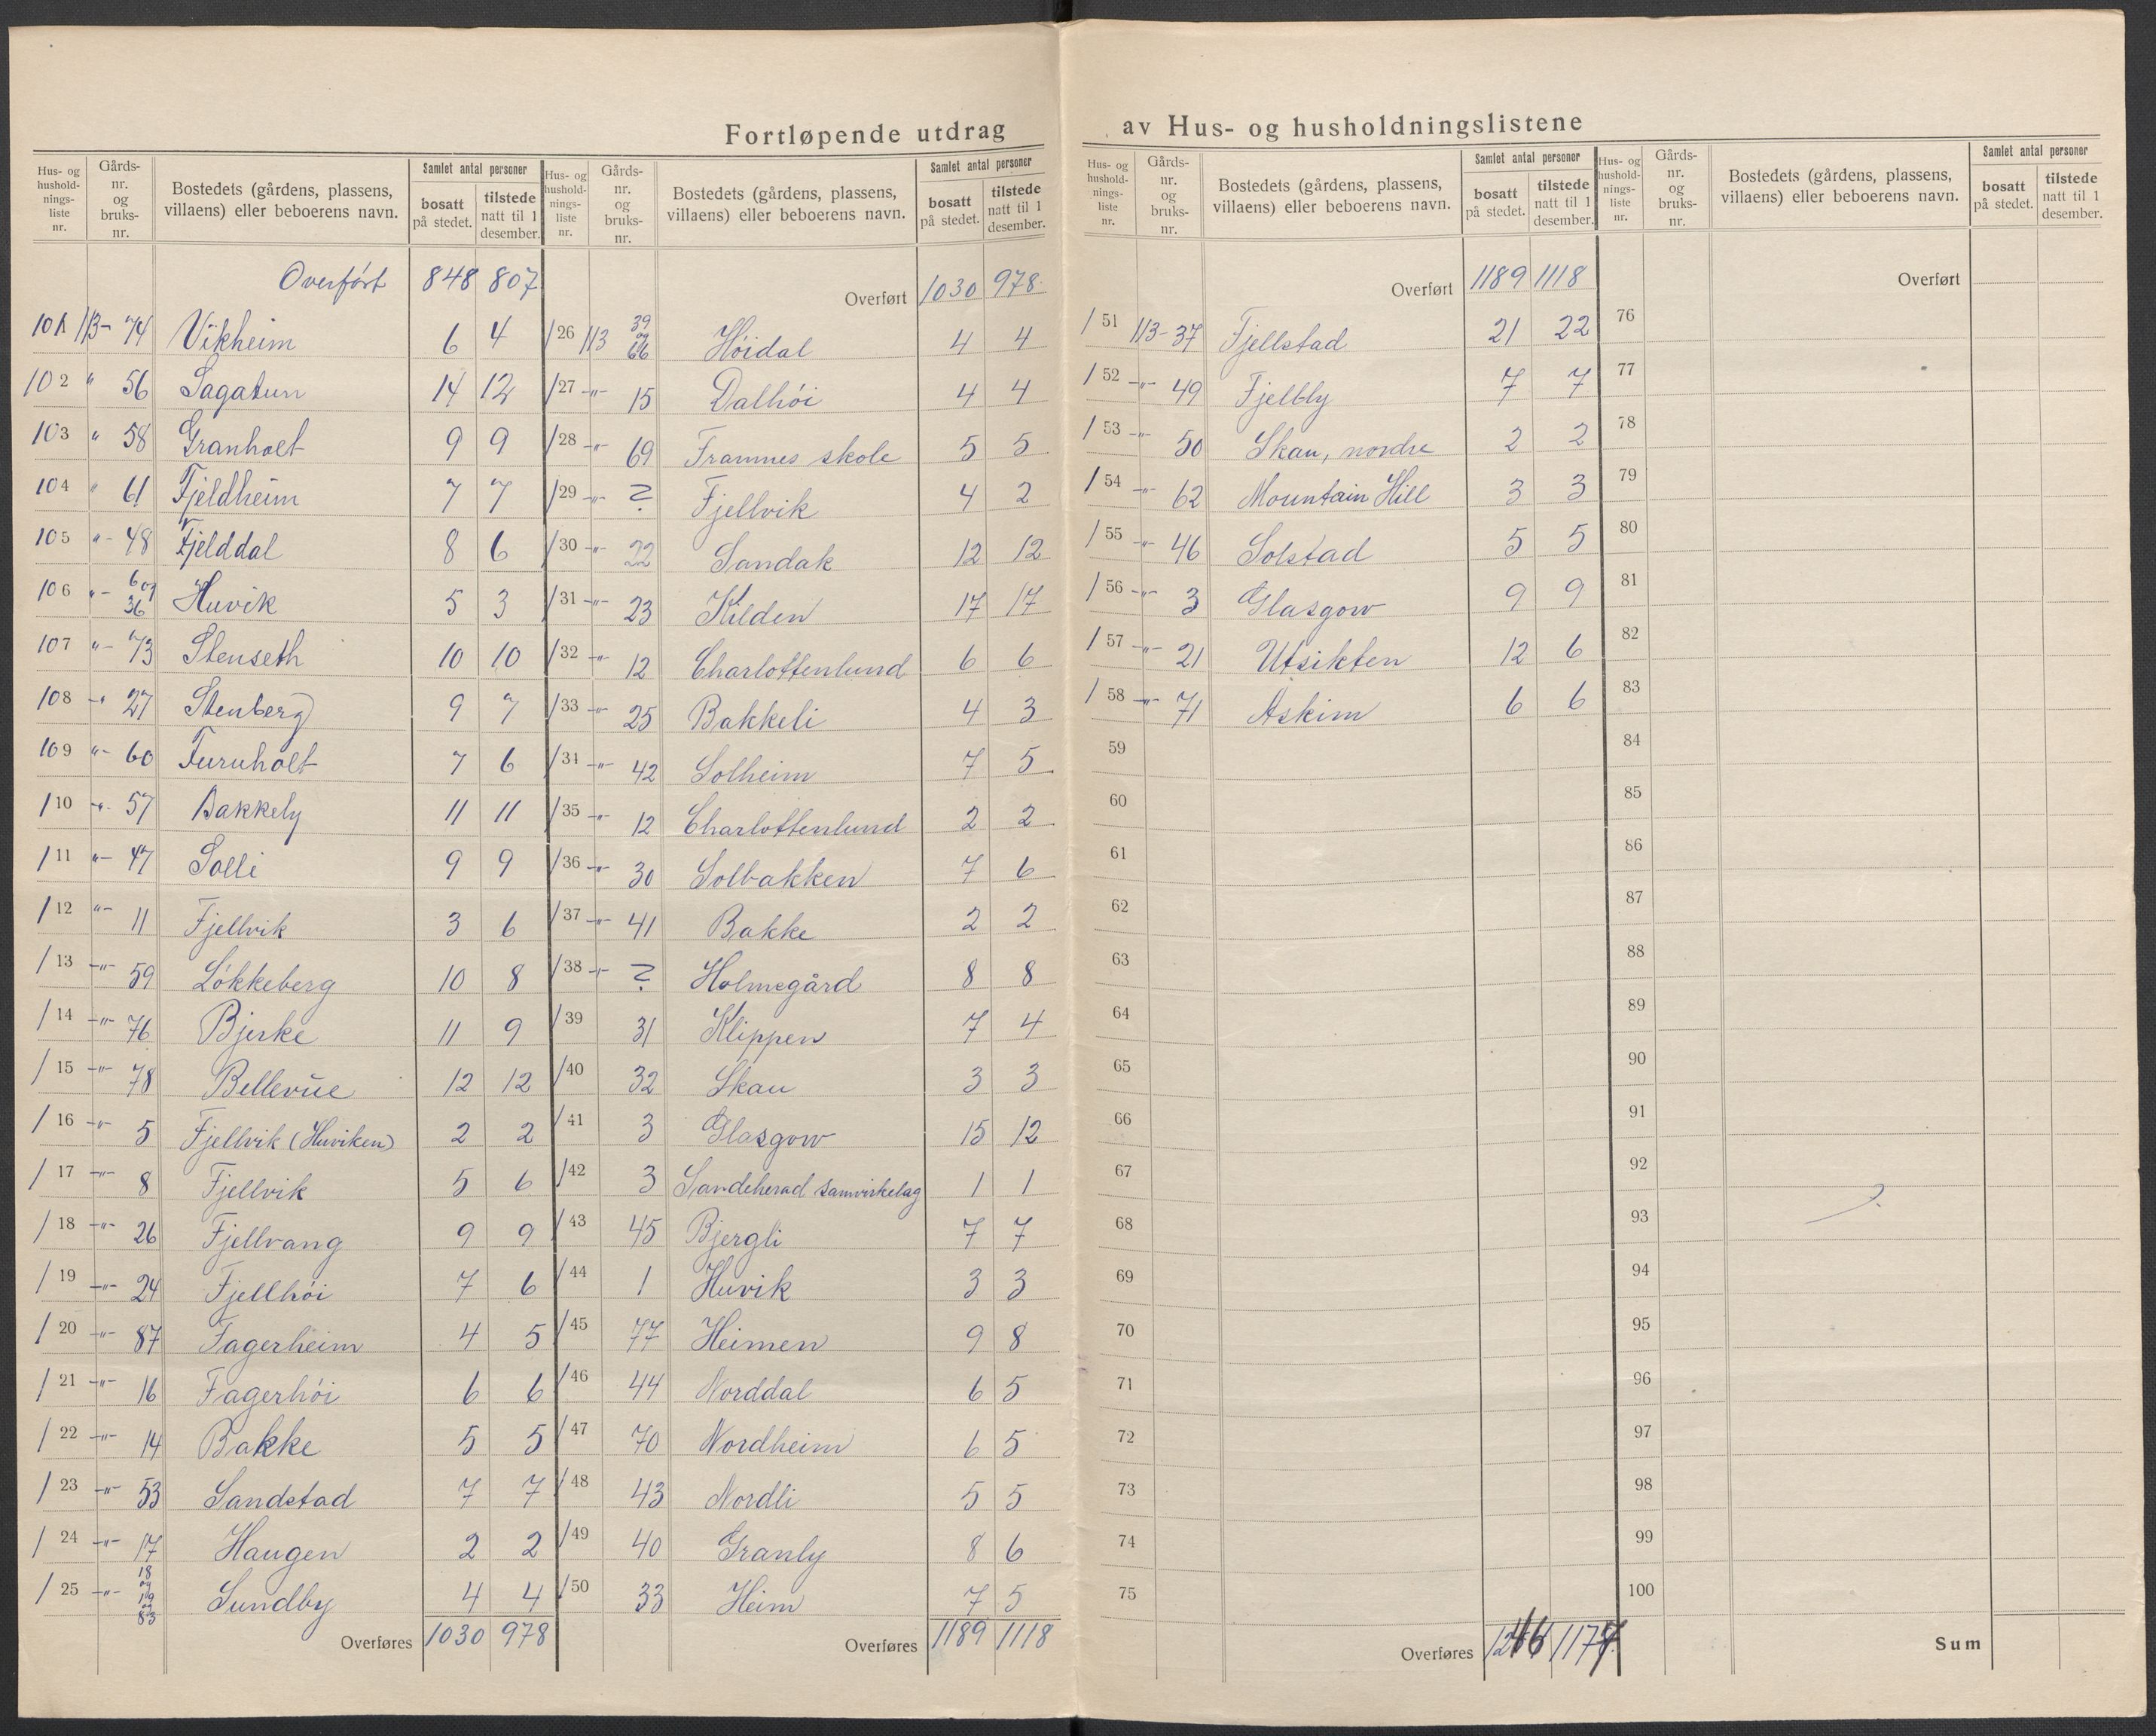 Fortløpende utdrag av Hus- og husholdningslistene
Hus- og hushold-nings-liste nr. Gårds-nr. og bruks-nr. Bostedets (gårdens, plassens, villaens) eller beboerens navn. Samlet antal personer bosatt på stedet. tilstede natt til 1 desember.
Overført 848 807
101 113- 74 Vikheim 6 4
102 " 56 Sagatun 14 12
103 " 58 Granholt 9 9
104 " 61 Fjeldheim 7 7
105 "- 48 Fjelddal 8 6
106 "- 6 og 36 Huvik 5 3
107 "- 73 Stenseth 10 10
108 -" 27 Stenberg 9 7
109 "- 60 Furuholt 7 6
110 -"- 57 Bakkely 11 11
111 "- 47 Solli 9 9
112 "- 11 Fjellvik 3 6
113 -"- 59 Løkkeberg 10 8
114 -"- 76 Bjerke 11 9
115 -"- 78 Bellevue 12 12
116 -"- 5 Fjellvik (Huviken) 2 2
117 -"- 8 Fjellvik 5 6
118 -"- 26 Fjellvang 9 9
119 -"- 24 Fjellhöi 7 6
120 -"- 87 Fagerheim 4 5
121 -"- 16 Fagerhöi 6 6
122 -"- 14 Bakke 5 5
123 -"- 53 Sandstad 7 7
124 -"- 17 Haugen 2 2
125 -"- 18 og 19 og 83 Sundby 4 4
Overføres 1030 978
Hus- og hushold-nings-liste nr. Gårds-nr. og bruks-nr. Bostedets (gårdens, plassens, villaens) eller beboerens navn. Samlet antal personer bosatt på stedet. tilstede natt til 1 desember.
Overført 1030 978
126 113 39 og 66 Höidal 4 4
127 -"- 15 Dalhöi 4 4
128 -"- 69 Framnes skole 5 5
129 -"- ? Fjellvik 4 2
130 -"- 22 Sandak 12 12
131 -"- 23 Kilden 17 17
132 -"- 12 Charlottenlund 6 6
133 -"- 25 Bakkeli 4 3
134 -"- 42 Solheim 7 5
135 -"- 12 Charlottenlund 2 2
136 -"- 30 Solbakken 7 6
137 -"- 41 Bakke 2 2
138 -"- ? Holmegård 8 8
139 31 Klippen 7 4
140 32 Skau 3 3
141 3 Glasgow 15 12
142 3 Sandeherad samvirkelag 1 1
143 45 Bjergli 7 7
144 1 Huvik 3 3
145 77 Heimen 9 8
146 44 Norddal 6 5
147 70 Nordheim 6 5
148 43 Nordli 5 5
149 40 Granly 8 6
150 33 Heim 7 5
Overføres 1189 1118
Hus- og hushold-nings-liste nr. Gårds-nr. og bruks-nr. Bostedets (gårdens, plassens, villaens) eller beboerens navn. Samlet antal personer bosatt på stedet. tilstede natt til 1 desember.
Overført 1189 1118
151 113- 37 Fjellstad 21 22
152 -"- 49 Fjellby 7 7
153 -"- 50 Skau, nordre 2 2
154 -"- 62 Mountain Hill 3 3
155 -"- 46 Solstad 5 5
156 -"- 3 Glasgow 9 9
157 -"- 21 Utsikten 12 6
158 -"- 71 Askim 6 6
59
60
61
62
63
64
65
66
67
68
69
70
71
72
73
74
75
Overføres
Hus- og hushold-nings-liste nr. Gårds-nr. og bruks-nr. Bostedets (gårdens, plassens, villaens) eller beboerens navn. Samlet antal personer bosatt på stedet. tilstede natt til 1 desember.
Overført
76
77
78
79
80
81
82
83
84
85
86
87
88
89
90
91
92
93
94
95
96
97
98
99
100
Sum